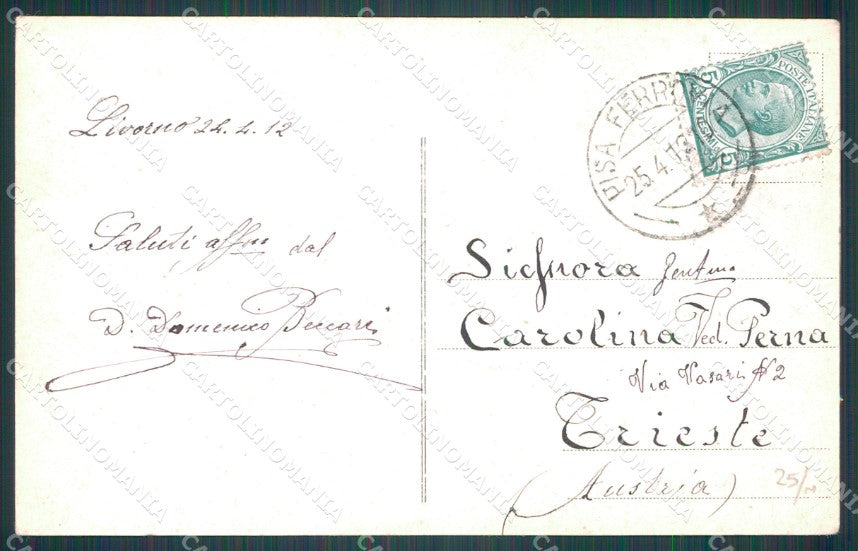 Livorno 24.4.12
Saluti affmi dal
D. Domenico Beccari
PISA FERROVIA
25.4.12
POSTE ITALIANE
CENTESIMI
5 5
Signora Gentma
Carolina Ved. Perna
Via Vasari N 2
Trieste
(Austria)
25/
CARTOLINOMANIA